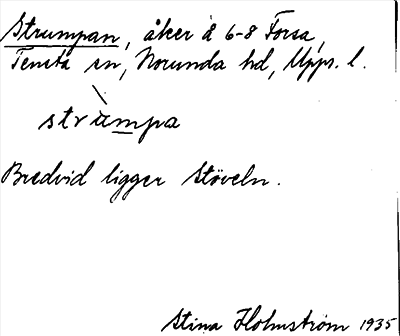 Strumpan, åker å 6-8 Forsa,
Tensta sn, Norunda hd, Upps. l.
strampa
Bredvid ligger Stöveln.
Stina Holmström 1935